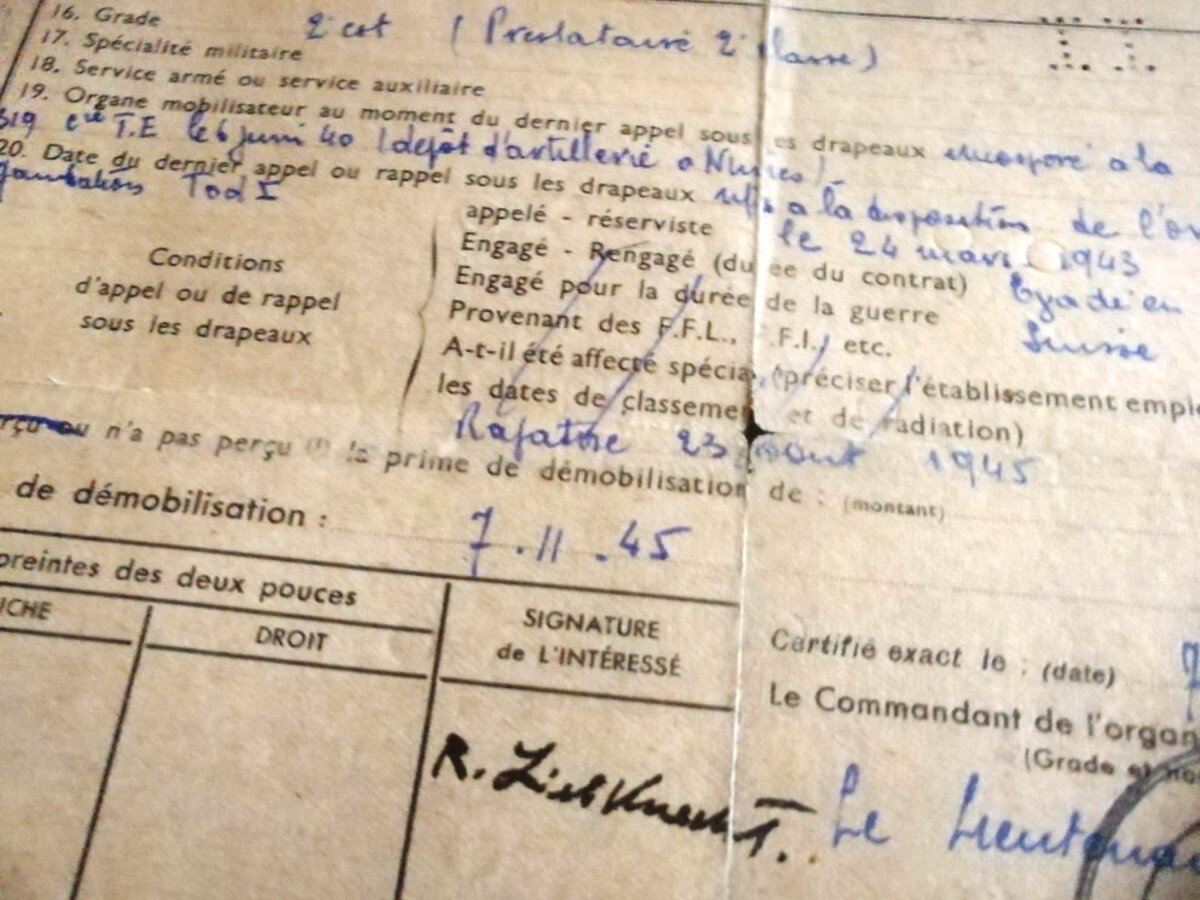 16. Grade 2e cat (Prestataire 2e classe)
17. Spécialité militaire
18. Service armé ou service auxiliaire
19. Organe mobilisateur au moment du dernier appel sous les drapeaux incorporé a la
319 eme T.E le 6 juin 40 (depôt d'artillerie a Nimes)
20. Date du dernier appel ou rappel sous les drapeaux mis a la disposition de l'or
ganisation Todt le 24 mars 1943
appelé - réserviste
Engagé - Rengagé (durée du contrat) Evadé en
Engagé pour la durée de la guerre Suisse
Conditions
d'appel ou de rappel
sous les drapeaux
Provenant des F.F.L., F.F.I., etc.
A-t-il été affecté spécial (préciser l'établissement empl
les dates de classement et de radiation)
Rapatrié 23 aout 1945
erçu ou n'a pas perçu (1) la prime de démobilisation de : (montant)
de démobilisation : 7.11.45
preintes des deux pouces
UCHE
DROIT
SIGNATURE
de L'INTÉRESSÉ
R. Liebknecht.
Certifié exact le : (date) 7
Le Commandant de l'organ
(Grade et no
Le Lieutenan